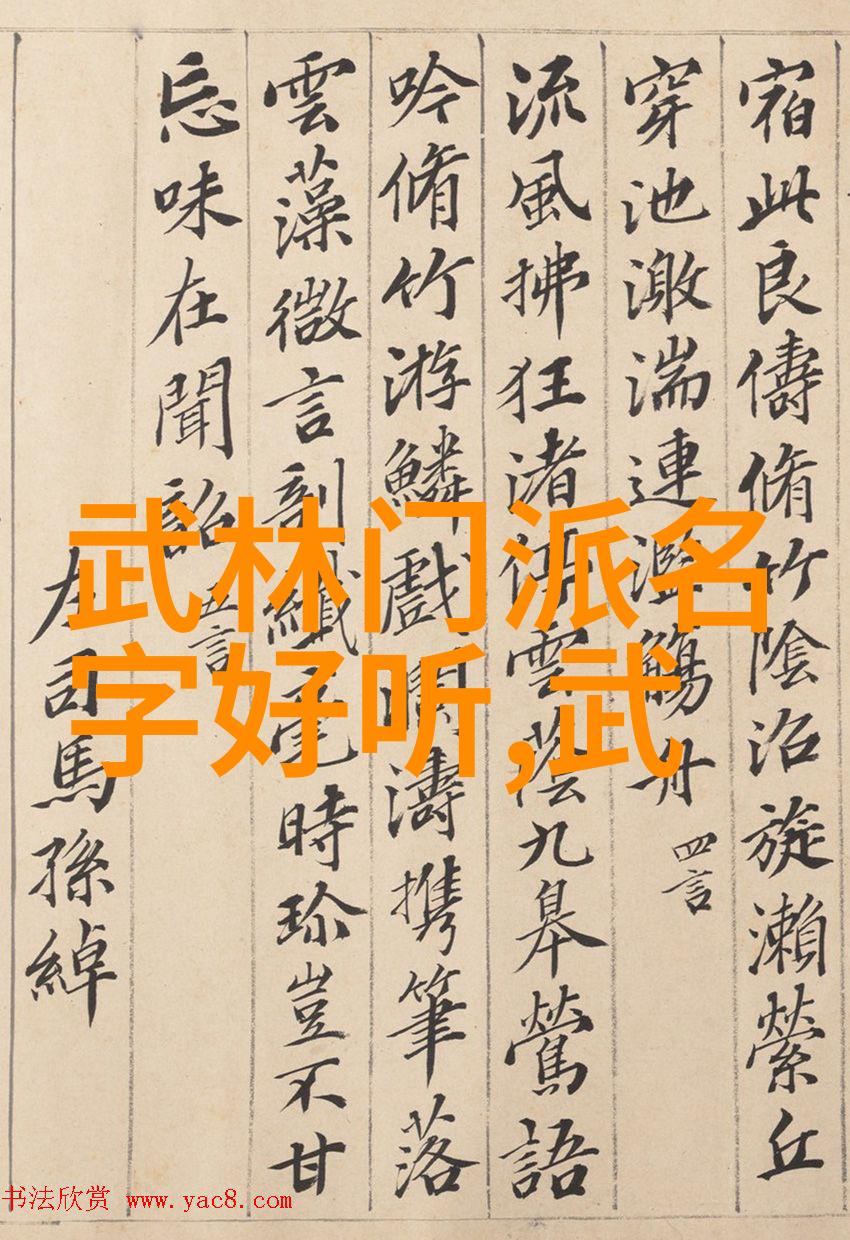 宿此良儔脩竹陰沼旋瀨縈丘
穿池激湍連濫觴舟 四言
流風拂狂渚傳雲蔭九皋鶯語
吟脩竹游鱗戲瀾濤携筆落
雲藻微言剖纖毫時珍豈不甘
忘味在聞韶 五言
左司馬孫綽
武林门派名
字好听,武
书法欣赏 www.yac8.com